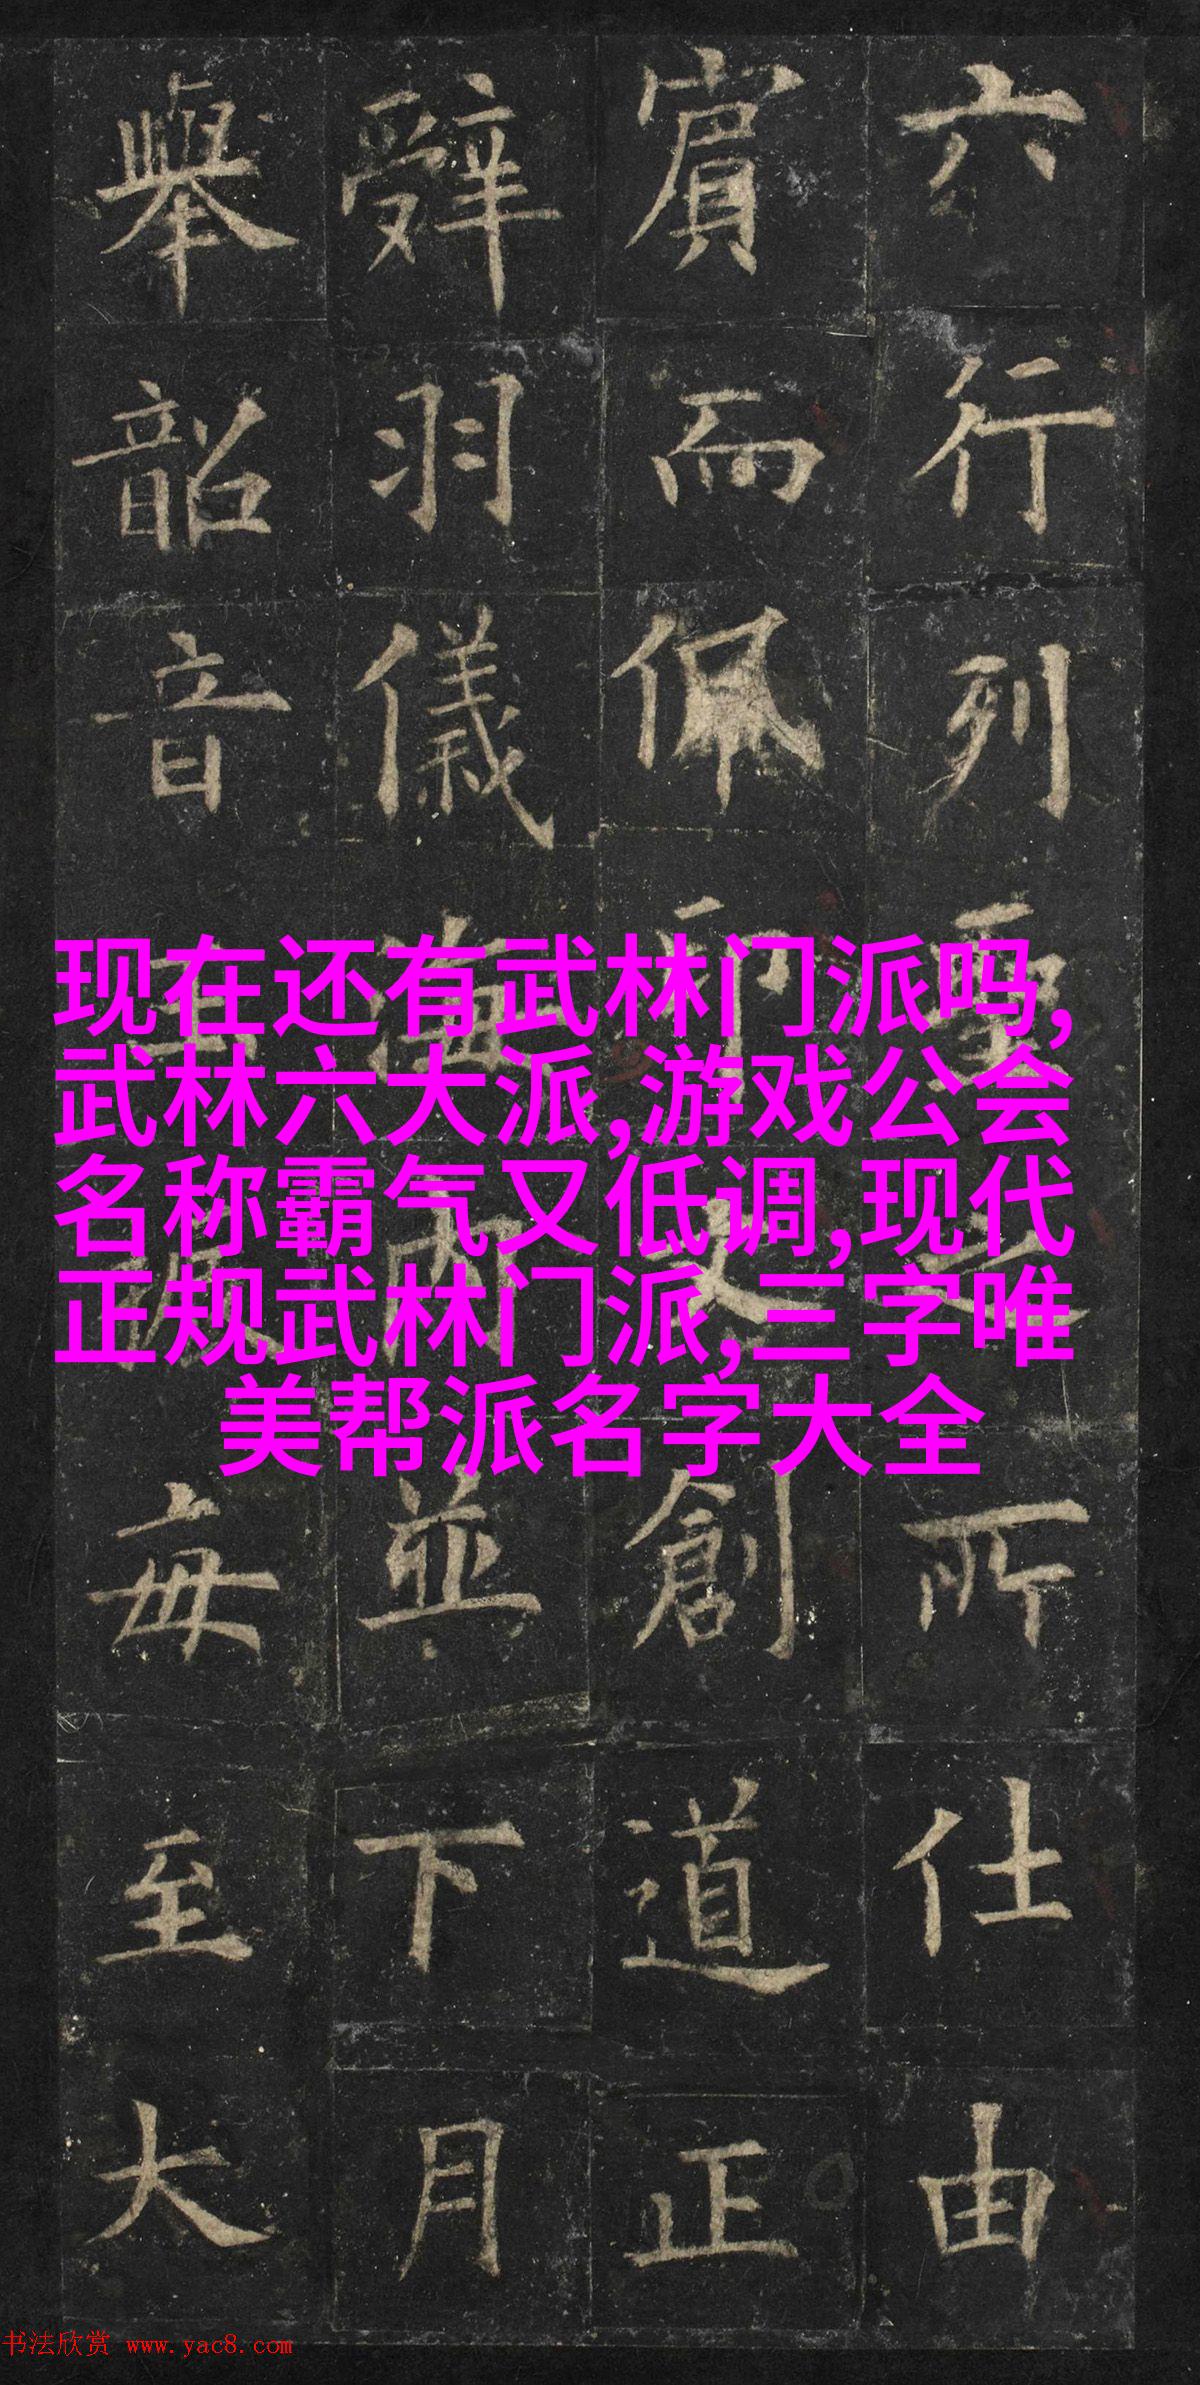 六行列聖
所仕由
賓而佩
創道正
辭羽儀海
並下月
舉韶音
每至大
现在还有武林门派吗,
武林六大派,游戏公会
名称霸气又低调,现代
正规武林门派,三字唯
美帮派名字大全
书法欣赏 www.yac8.com